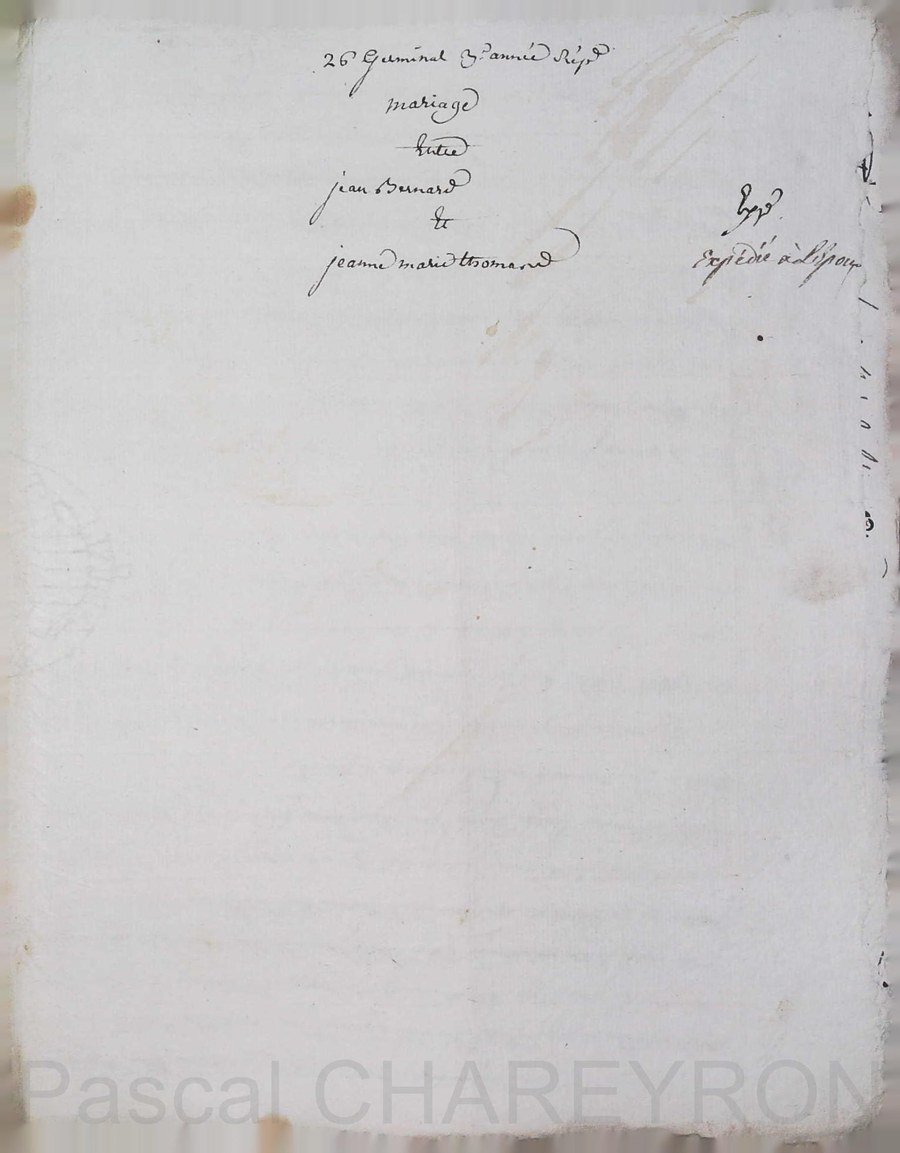 26 Germinal 3e année Rép
mariage
Entre
jean Bernard
Et
jeanne marie thomand
Expé
Expédié à l'époux
Pascal CHAREYRON